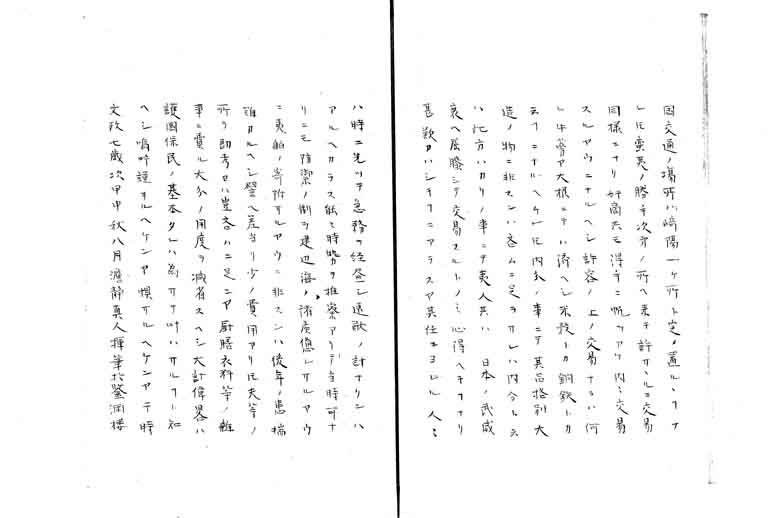 国交通ノ場所ハ崎陽一ケ所ト定メ置ルヽヲ
レ𪜈蛮夷ノ勝手次第ノ所ヘ来テ許サルヽ交易
同様ニナリ奸商共モ得手ニ帆ヲアケ内々交易
スルヤウニナルヘシ許容ノ上ノ交易ナラハ何
レ牛脅ヤ大根ニテハ済ヘシ米穀トカ銅鉄トカ
云フニナルヘケレ𪜈内々ノ事ニテ其品格別大
造ノ物ニ非スンハ吝ムニ足ラサレハ内分ト云
ハ此方ハカリノ事ニテ夷人共ハ 日本ノ武威
衰ヘ屈騰シテ交易スルトノミ心得ヘキナリ
甚歎カハシキヿニアラスヤ其任ニヨレル人々
ハ時ニ先ツテ急務ヲ経営シ遠猷ノ計ナクンハ
アルヘカラス能ヒ時勢ヲ推察アリテ当時可ナ
リニモ防禦ノ制ヲ建辺海ノ諸虞備レサルヤウ
ニ夷舶ノ寄附サルヤウニ非スンハ後年ノ患禍
難カルヘシ譬ヘ差当リ少ノ費用アリ𪜈夫等ノ
所ヲ助考セハ豈吝ハニ足ンヤ厨膳衣料等ノ雑
事ニ費ル大分ノ用度ヲ減省スヘシ大計偉略ハ
護国保民ノ基本タレハ為サテ叶ハサルヿト知
ヘシ嗚呼謹サルヘケンヤ慎サルヘケンヤ于時
文政七歳次甲申秋八月澹静真人揮筆於鑒洞楼